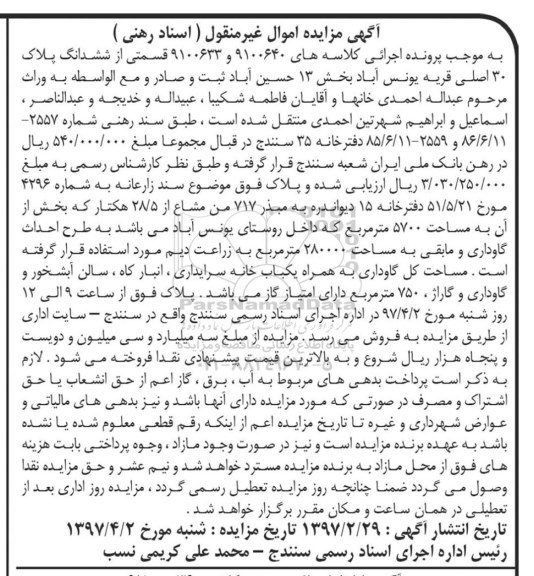 آگهی مزایده اموال غیرمنقول ( اسناد رهنی )
به موجب پرونده اجرائی کلاسه های ۹۱۰۰۶۴۰ و ۹۱۰۰۶۳۳ قسمتی از ششدانگ پلاک
۳۰ اصلی قریه یونس آباد بخش ۱۳ حسین آباد ثبت و صادر و مع الواسطه به وراث
مرحوم عبداله احمدی خانها و آقایان فاطمه شکیبا ، عبیداله و خدیجه و عبدالناصر ،
اسماعیل و ابراهیم شهرتین احمدی منتقل شده است ، طبق سند رهنی شماره ۲۵۵۷-
۸۶/۶/۱۱ و ۲۵۵۹-۸۵/۶/۱۱ دفترخانه ۳۵ سنندج در قبال مجموعا مبلغ ۵۴۰/۰۰۰/۰۰۰ ریال
در رهن بانک ملی ایران شعبه سنندج قرار گرفته و طبق نظر کارشناس رسمی به مبلغ
۳/۰۳۰/۲۵۰/۰۰۰ ریال ارزیابی شده و پلاک فوق موضوع سند زارعانه به شماره ۴۲۹۶
مورخ ۵۱/۵/۲۱ دفترخانه ۱۵ دیواندره به میذر ۷۱۷ من مشاع از ۲۸/۵ هکتار که بخش از
آن به مساحت ۵۷۰۰ مترمربع که داخل روستای یونس آباد می باشد به طرح احداث
گاوداری و مابقی به مساحت ۲۸۰۰۰۰ مترمربع به زراعت دیم مورد استفاده قرار گرفته
است . مساحت کل گاوداری به همراه یکباب خانه سرایداری ، انبار کاه ، سالن آبشخور و
گاوداری و گاراژ ، ۷۵۰ مترمربع دارای امتیاز گاز می باشد . پلاک فوق از ساعت ۹ الی ۱۲
روز شنبه مورخ ۹۷/۴/۲ در اداره اجرای اسناد رسمی سنندج واقع در سنندج – سایت اداری
از طریق مزایده به فروش می رسد . مزایده از مبلغ سه میلیارد و سی میلیون و دویست
و پنجاه هزار ریال شروع و به بالاترین قیمت پیشنهادی نقدا فروخته می شود . لازم
به ذکر است پرداخت بدهی های مربوط به آب ، برق ، گاز اعم از حق انشعاب یا حق
اشتراک و مصرف در صورتی که مورد مزایده دارای آنها باشد و نیز بدهی های مالیاتی و
عوارض شهرداری و غیره تا تاریخ مزایده اعم از اینکه رقم قطعی معلوم شده یا نشده
باشد به عهده برنده مزایده است و نیز در صورت وجود مازاد ، وجوه پرداختی بابت هزینه
های فوق از محل مازاد به برنده مزایده مسترد خواهد شد و نیم عشر و حق مزایده نقدا
وصول می گردد ضمنا چنانچه روز مزایده تعطیل رسمی گردد ، مزایده روز اداری بعد از
تعطیلی در همان ساعت و مکان مقرر برگزار خواهد شد .
تاریخ انتشار آگهی : ۱۳۹۷/۲/۲۹ تاریخ مزایده : شنبه مورخ ۱۳۹۷/۴/۲
رئیس اداره اجرای اسناد رسمی سنندج – محمد علی کریمی نسب
ParsNamadData